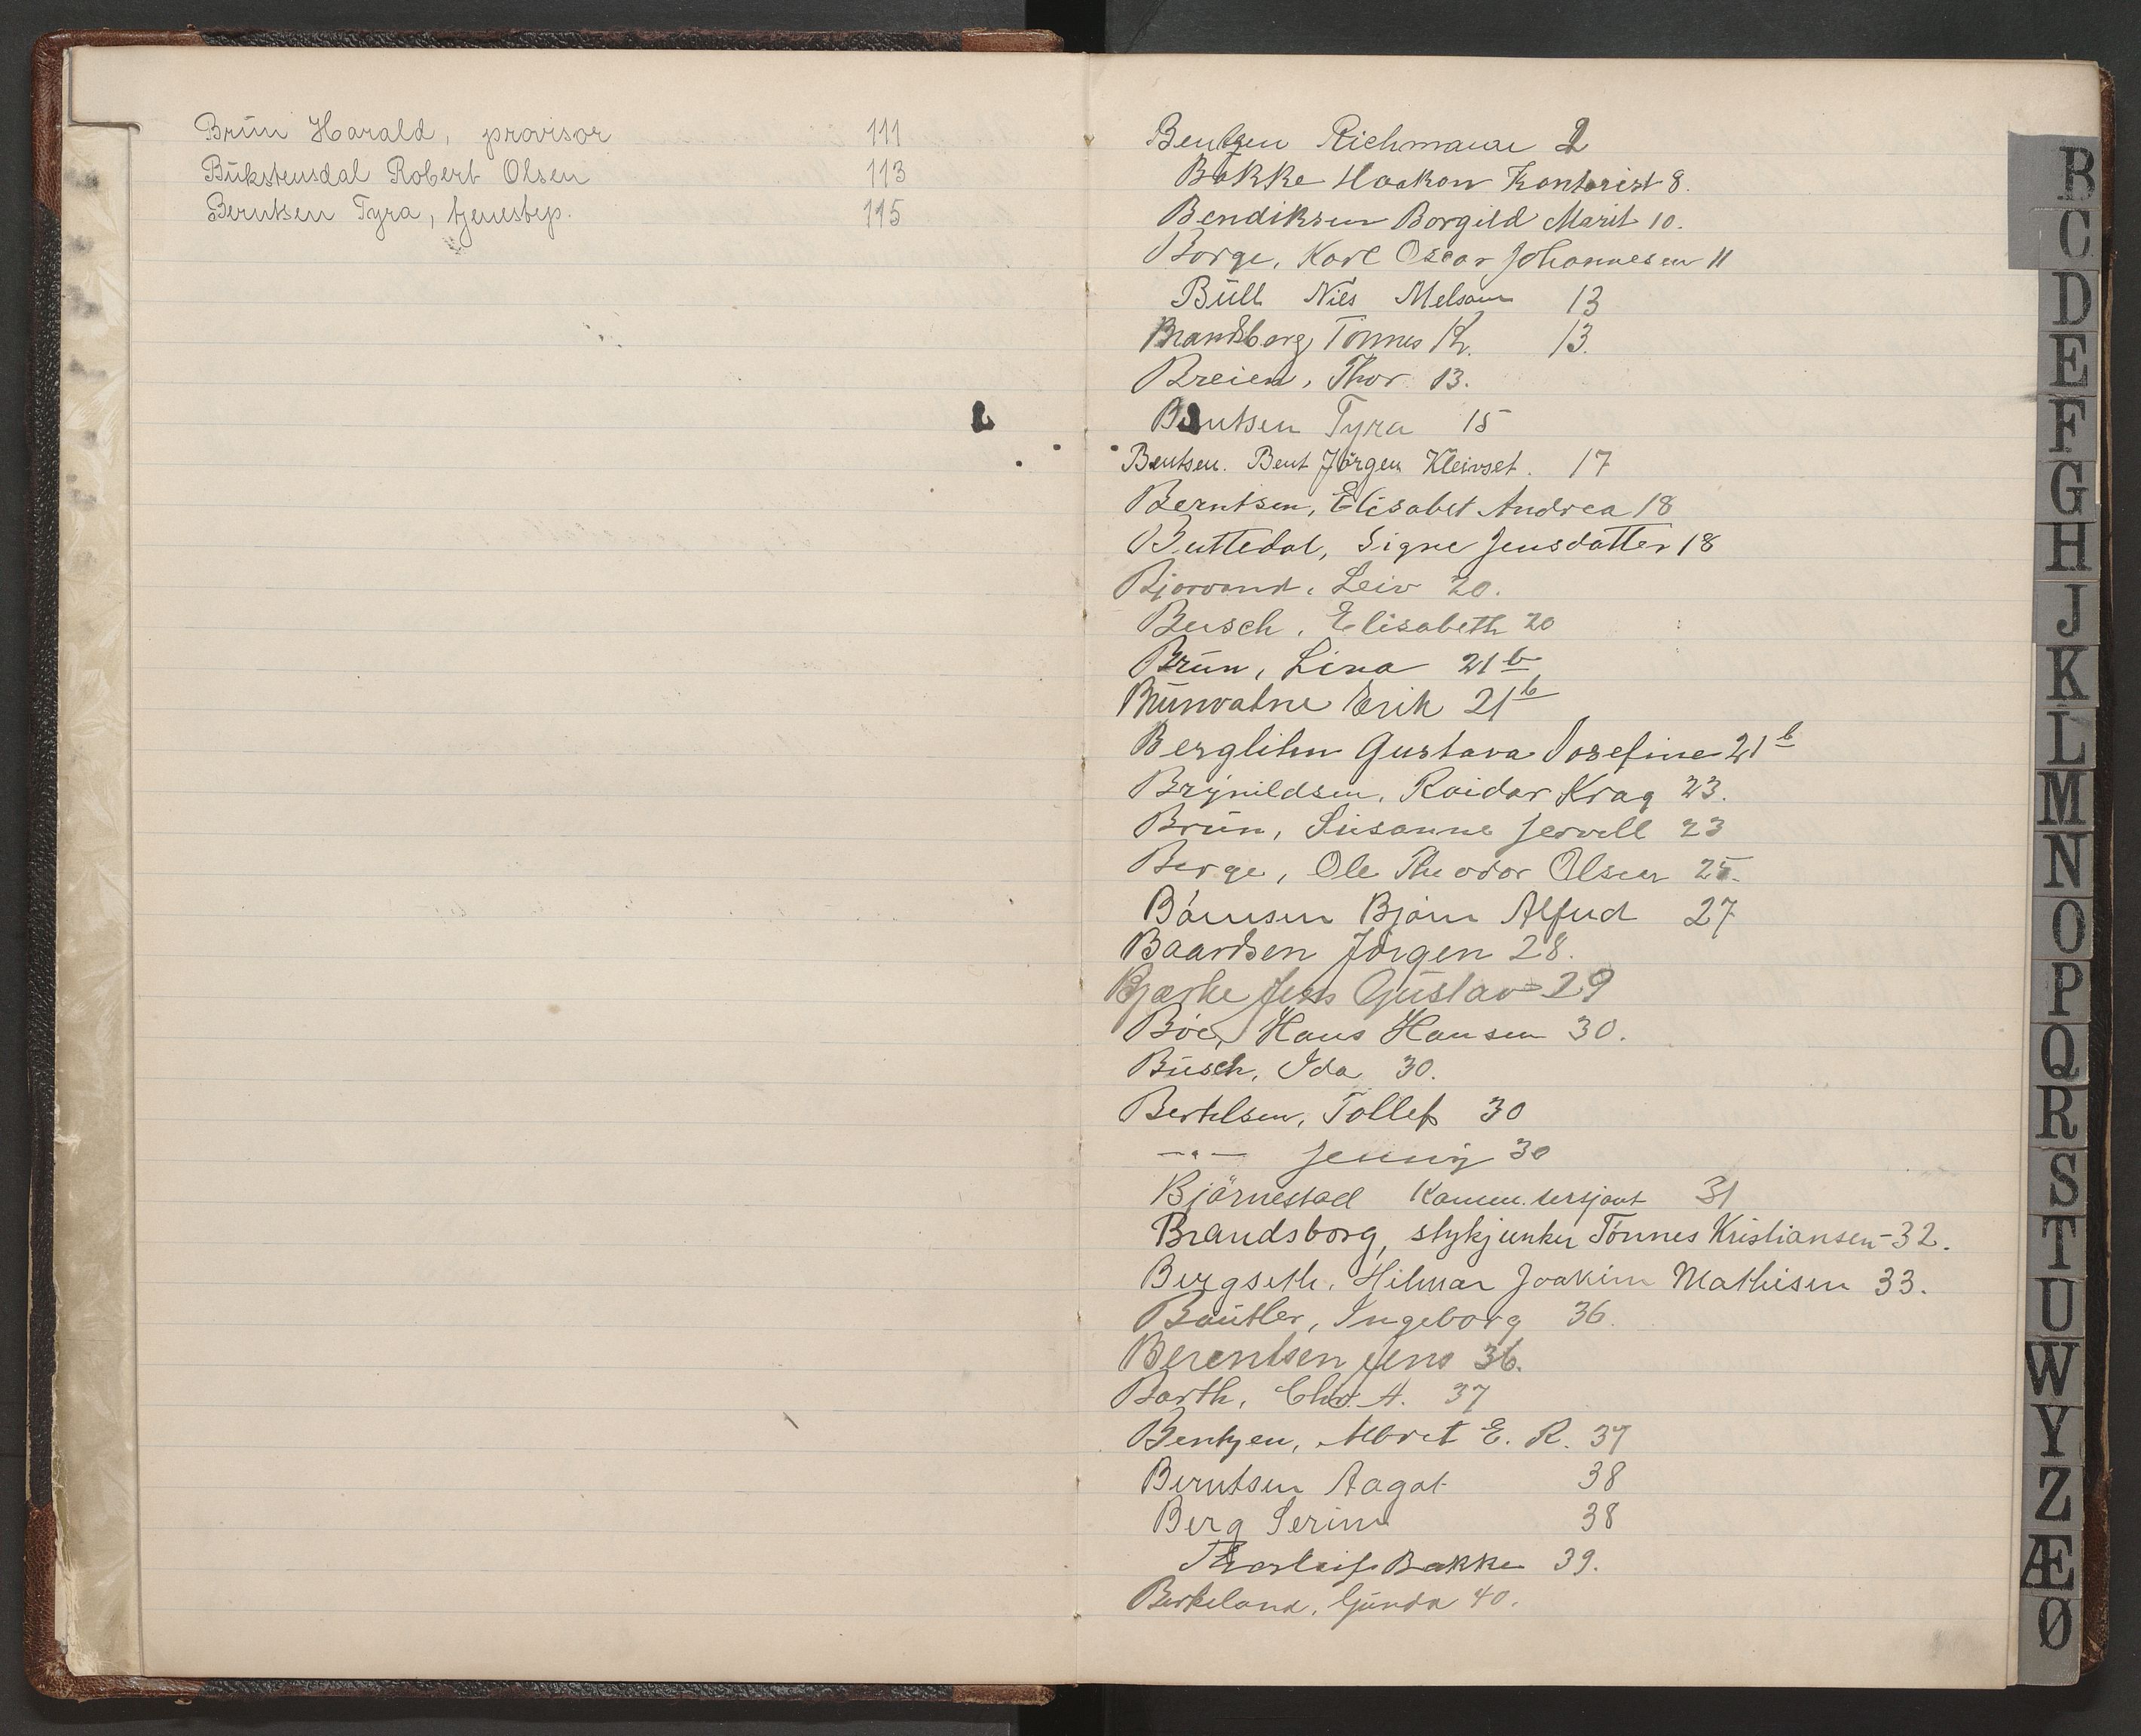 Brün Harald, provisor 111
Bükstensdal Robert Olsen 113
Berntsen Tyra, tjenestep. 115
Bentzen Richmann 2
Bakke Haakon Kontorist 8.
Bendiksen Borgild Marit 10.
Borge, Karl Oscar Johannesen 11
Büll Nils Melsom 13
Brandsborg Tönnes K. 13.
Breien, Thor 13.
Bentsen Tyra 15
Bentsen. Bent Jörgen Kleivset. 17
Berntsen, Elisabet Andrea 18
Buttedal, Signe Jensdatter 18
Bjorvand, Leiv 20.
Busch, Elisabeth 20
Brün, Lina 21b
Brünvatne Erik 21b
Berglihn Gustava Josefine 21b
Brynildsen, Reidar Krag 23.
Brün, Susanne Jervell 23
Berge, Ole Theodor Olsen 25.
Börnsen Björn Alfred 27
Baardsen Jörgen 28.
Bjerke Jens Güstav 29
Böe, Hans Hansen 30.
Büsch, Ida 30.
Bertelsen, Tollef 30
—"— Jenny 30
Björnestad Komm.sersjant 31
Brandsborg, stykjunker Tönnes Kristiansen 32.
Bergseth, Hilmar Joakim Mathisen 33.
Baütler, Ingeborg 36.
Berentsen Jens 36.
Barth, Chr. A. 37
Bentzen, Albret E. R. 37
Berntsen Aagot 38
Berg Serine 38
Thorleif Bakke 39.
Birkeland, Günda 40.
B
C
D
E
F
G
H
J
K
L
M
N
O
P
Q
R
S
T
U
W
Y
Z
Æ
Ø